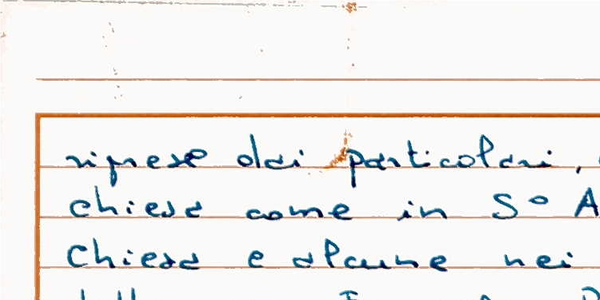 riprese dai particolari,
chiesa come in S° A
chiesa e alcune nei